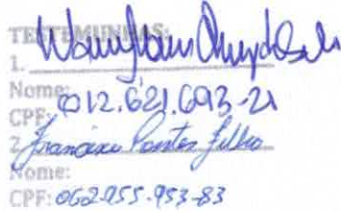 TESTEMUNHAS:
1.
Nome:
CPF: 012.621.693-21
2. Francisco Pontes Filho
Nome:
CPF: 062.955.953-83